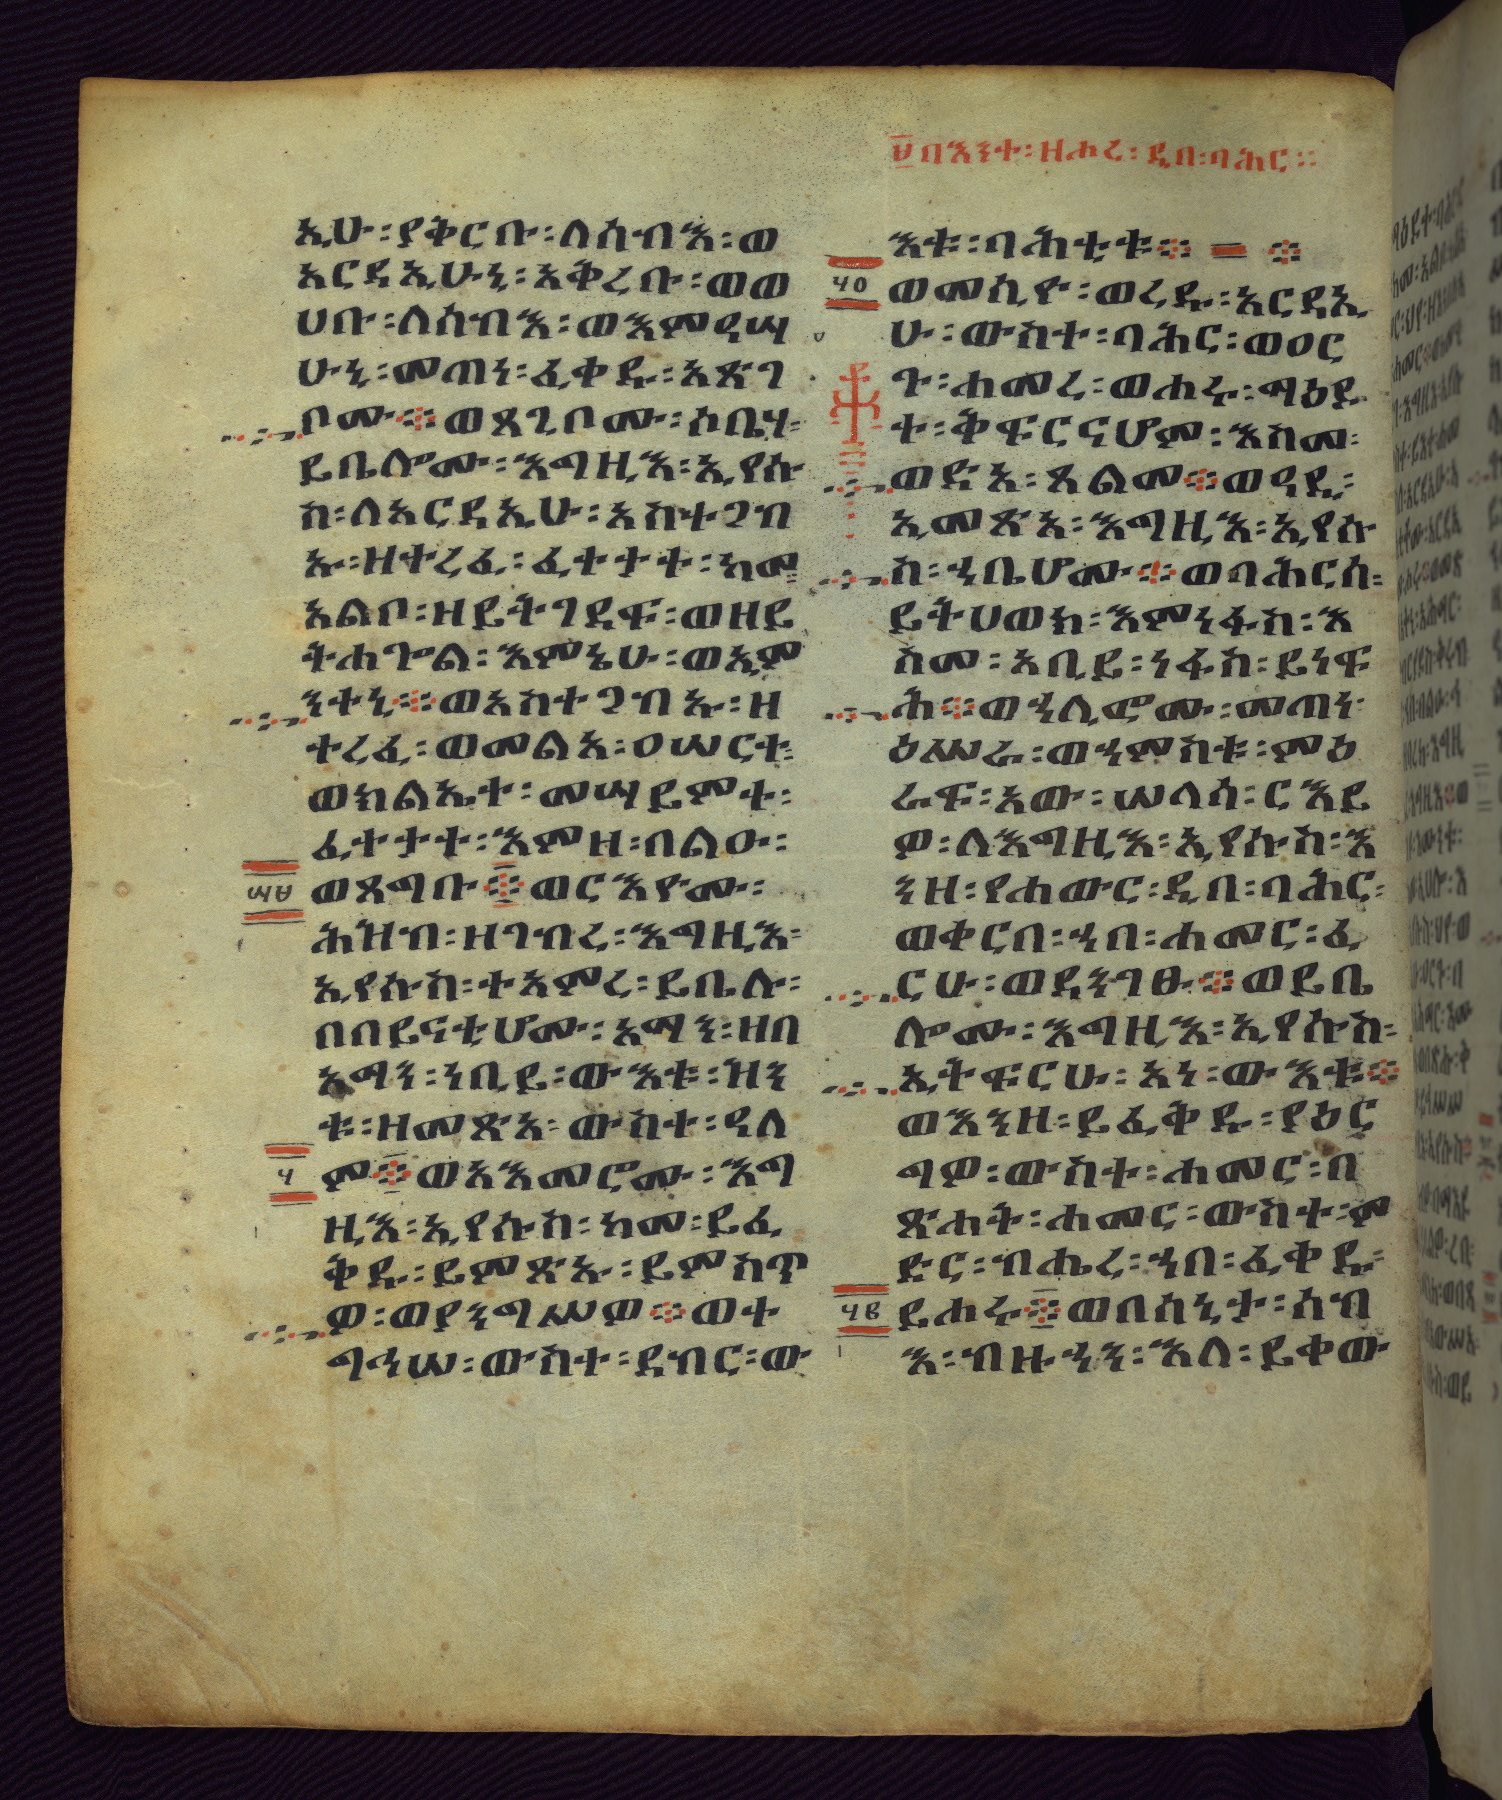 ፭በእንተ፡ዘሐረ፡ዲበ፡ባሕር፡፡
ኢሁ፡ያቅርቡ፡ለሰብእ፡ወ
አርዳኢሁኒ፡አቅረቡ፡ወወ
ሀቡ፡ለሰብእ፡ወእምዓሣ
ሁኒ፡መጠነ፡ፈቀዱ፡አጽገ
ቦሙ፨ወጸጊቦሙ፡ሶቤሃ፡
ይቤሎሙ፡እግዚእ፡ኢየሱ
ስ፡ለአርዳኢሁ፡አስተጋብ
ኡ፡ዘተረፈ፡ፈተታተ፡ከመ፡
አልቦ፡ዘይትገደፍ፡ወዘይ
ትሐጐል፡እምኔሁ፡ወኢም
ንተኒ፨ወአስተጋብኡ፡ዘ
ተረፈ፡ወመልአ፡ዐሠርተ፡
ወክልኤተ፡መሣይምተ፡
ፈተታተ፡እምዘ፡በልዑ፡
ወጸግቡ፨ወርእዮሙ፡
ሕዝብ፡ዘገብረ፡እግዚእ፡
ኢየሱስ፡ተአምረ፡ይቤሉ፡
በበይናቲሆሙ፡አማን፡ዘበ
አማን፡ነቢይ፡ውእቱ፡ዝን
ቱ፡ዘመጽአ፡ውስተ፡ዓለ
፶
ም፨ወአእመሮሙ፡እግ
ዚእ፡ኢየሱስ፡ከመ፡ይፈ
ቅዱ፡ይምጽኡ፡ይምስጥ
ዎ፡ወያንግሥዎ፨ወተ
ግኅሠ፡ውስተ፡ደብር፡ው
እቱ፡ባሕቲቱ፨ ፨
፶፩
ወመስዮ፡ወረዱ፡አርዳኢ
ሁ፡ውስተ፡ባሕር፡ወዐር
ጉ፡ሐመረ፡ወሐሩ፡ማዕዶ
ተ፡ቅፍርናሆም፡እስመ፡
ወድአ፡ጸልመ፨ወዓዲ፡
ኢመጽአ፡እግዚእ፡ኢየሱ
ስ፡ኀቤሆሙ፨ወባሕርሰ፡
ይትሀወክ፡እምነፋስ፡እ
ስመ፡አቢይ፡ነፋስ፡ይነፍ
ሕ፨ወኀሊፎሙ፡መጠነ፡
ዕሥራ፡ወኀምስቱ፡ምዕ
ራፍ፡አው፡ሠላሳ፡ርእይ
ዎ፡ለእግዚእ፡ኢየሱስ፡እ
ንዘ፡የሐውር፡ዲበ፡ባሕር፡
ወቀርበ፡ኀበ፡ሐመር፡ፈ
ርሁ፡ወደንገፁ፨ወይቤ
ሎሙ፡እግዚእ፡ኢየሱስ፡
ኢትፍርሁ፡አነ፡ውእቱ፨
ወእንዘ፡ይፈቅዱ፡ያዕር
ግዎ፡ውስተ፡ሐመር፡በ
ጽሐት፡ሐመር፡ውስተ፡ም
ድር፡ብሔረ፡ኀበ፡ፈቀዱ፡
፶፪
ይሐሩ፨ወበሳኒታ፡ሰብ
እ፡ብዙኀን፡እለ፡ይቀው